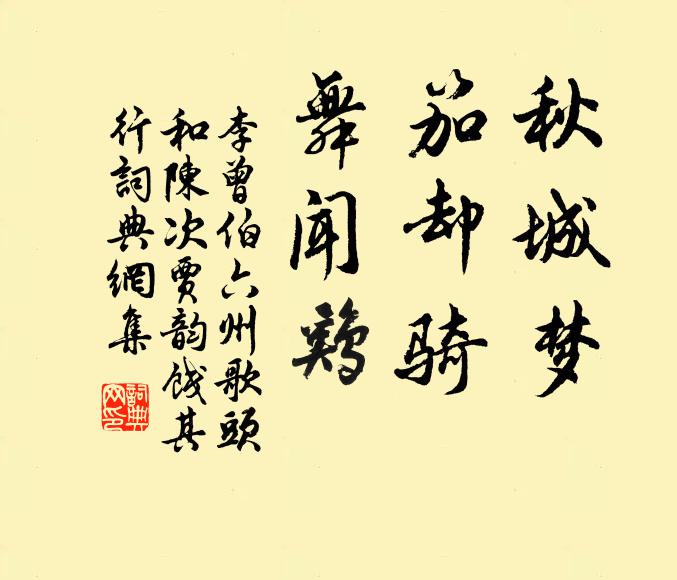 秋城梦
笳却骑
舞闻鸡
李曾伯六州歌頭
和陳次賈韵餞其
行詞典網集
詞典
网印